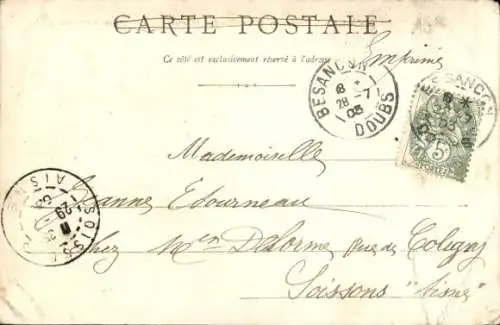 CARTE POSTALE
Ce côté est exclusivement réservé à l'adresse
Imprimé
BESANÇON
8
28 -7
03
DOUBS
BESANCON
5
POSTES
Mademoiselle
Jeanne Edourneau
chez Men Delorme Rue de Coligny
Soissons "Aisne"
SOISSONS
AISNE
29